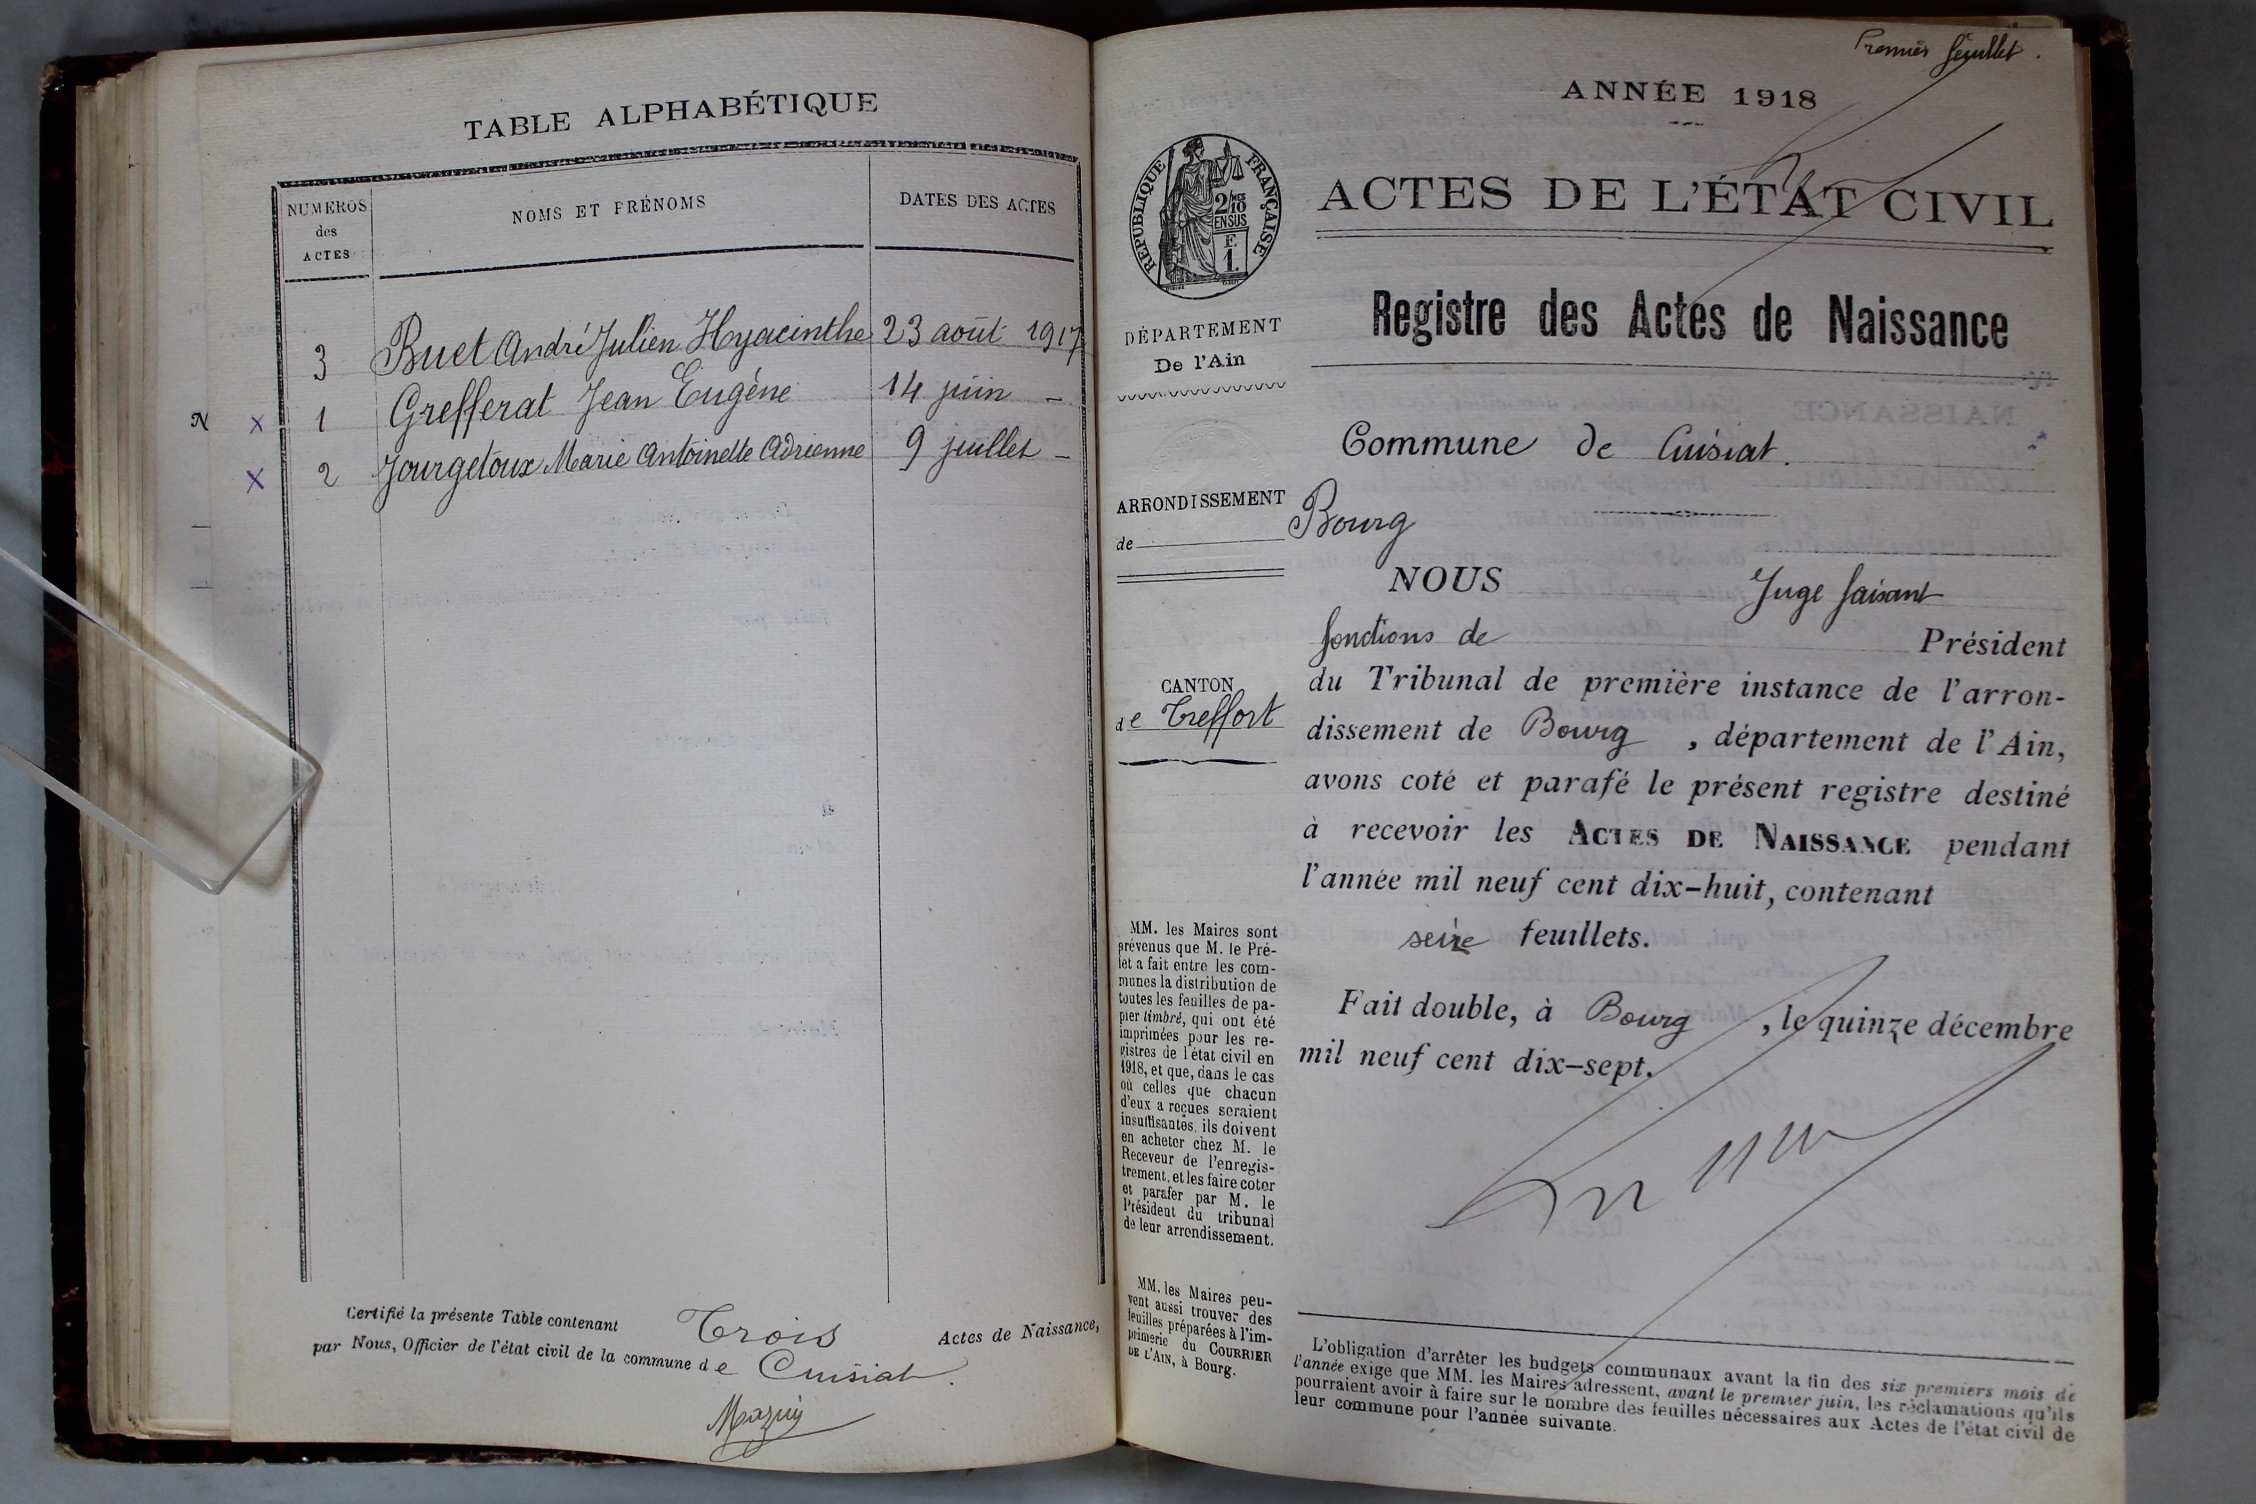 TABLE ALPHABÉTIQUE
NUMÉROS des ACTES
NOMS ET PRÉNOMS
DATES DES ACTES
3 Buet André Julien Hyacinthe 23 août 1917
N x 1 Grefferat Jean Eugène 14 juin —
x 2 Jourgetoux Marie Antoinette Adrienne 9 juillet —
Certifié la présente Table contenant Trois Actes de Naissance,
par Nous, Officier de l'état civil de la commune de Cuisiat.
Mazuy
Premier feuillet.
ANNÉE 1918
ACTES DE L'ÉTAT CIVIL
RÉPUBLIQUE FRANÇAISE
2/10
EN SUS
F.
1.
DÉPARTEMENT
De l'Ain
ARRONDISSEMENT
de Bourg
CANTON
de Treffort
MM. les Maires sont
prévenus que M. le Pré-
fet a fait entre les com-
munes la distribution de
toutes les feuilles de pa-
pier timbré, qui ont été
imprimées pour les re-
gistres de l'état civil en
1918, et que, dans le cas
où celles que chacun
d'eux a reçues seraient
insuffisantes, ils doivent
en acheter chez M. le
Receveur de l'enregis-
trement, et les faire coter
et parafer par M. le
Président du tribunal
de leur arrondissement.
MM. les Maires peu-
vent aussi trouver des
feuilles préparées à l'im-
primerie du COURRIER
DE L'AIN, à Bourg.
Registre des Actes de Naissance
Commune de Cuisiat.
NOUS Juge faisant
fonctions de Président
du Tribunal de première instance de l'arron-
dissement de Bourg , département de l'Ain,
avons coté et parafé le présent registre destiné
à recevoir les ACTES DE NAISSANCE pendant
l'année mil neuf cent dix-huit, contenant
seize feuillets.
Fait double, à Bourg , le quinze décembre
mil neuf cent dix-sept.
L'obligation d'arrêter les budgets communaux avant la fin des six premiers mois de
l'année exige que MM. les Maires adressent, avant le premier juin, les réclamations qu'ils
pourraient avoir à faire sur le nombre des feuilles nécessaires aux Actes de l'état civil de
leur commune pour l'année suivante.